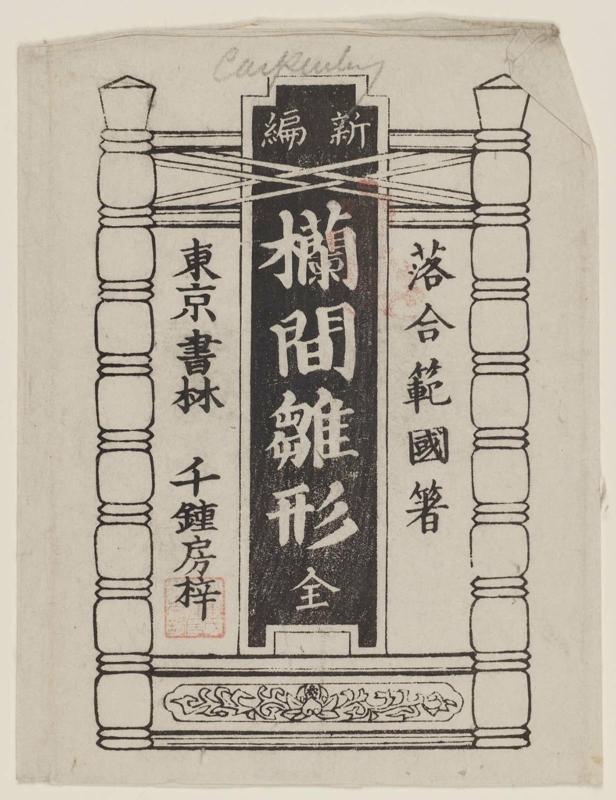 Carpentry
落合範國著
新編
欄間雛形
全
東京書林 千鍾房梓